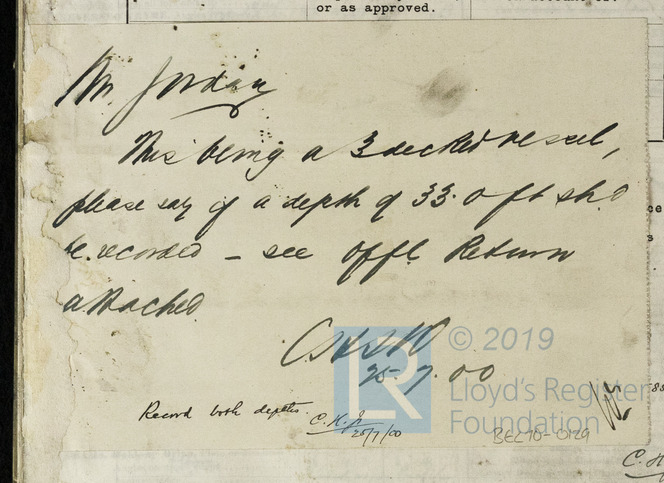 or as approved.
Mr. Jordan
This being a 3 decked vessel,
please say if a depth of 33.0 ft shd
be recorded – see offl. Return
attached
25.7.00
Record both depths.
C.H.J.
25/7/00
© 2019
LR
Lloyd's Register
Foundation
BEC10-0129
C.H